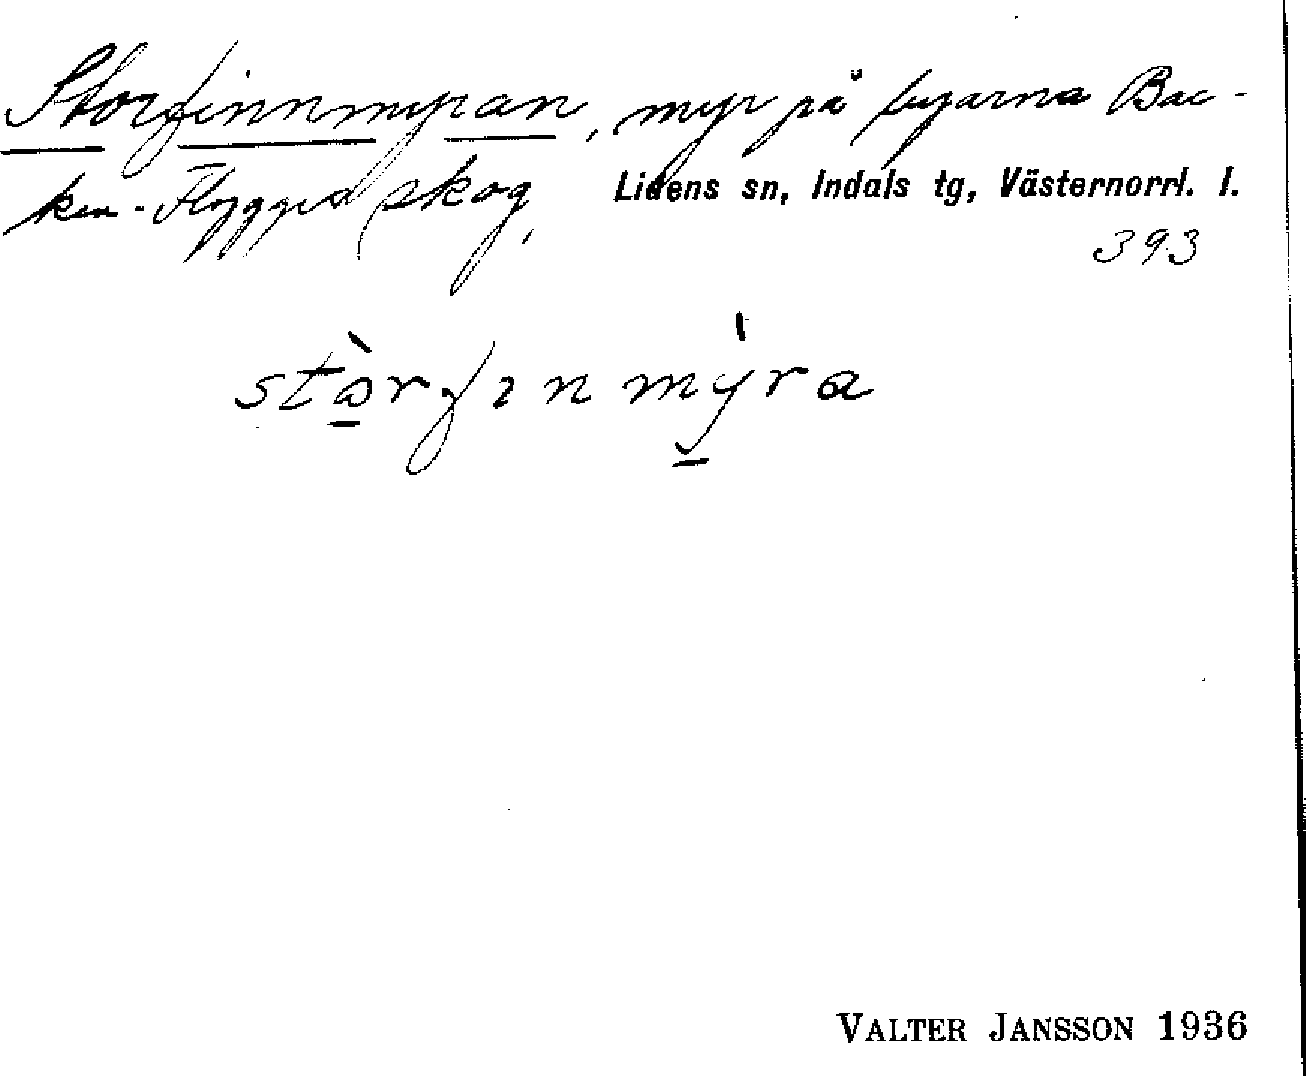 Storfinnmyran, myr på byarna Bac-
ken-Flygges skog, Lidens sn, Indals tg, Västernorrl. l.
393
stòrfınmỳra
VALTER JANSSON 1936